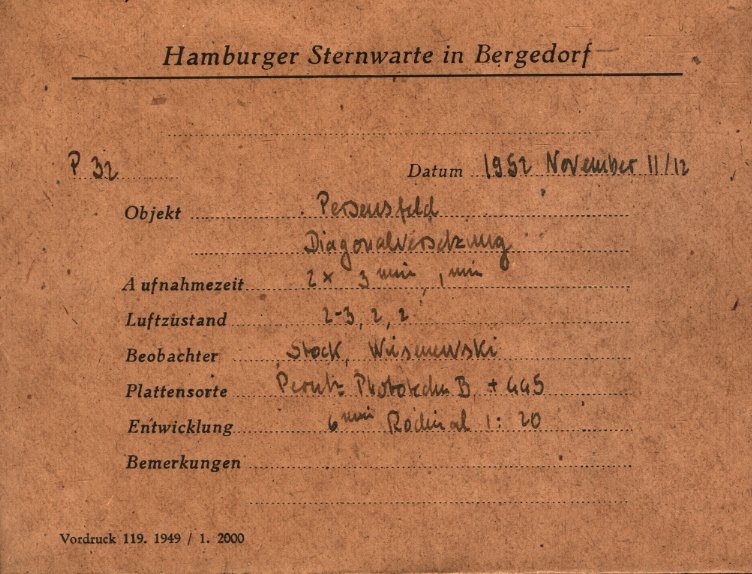 Hamburger Sternwarte in Bergedorf
P 32 Datum 1952 November 11/12
Objekt Perseusfeld
Diagonalversetzung
Aufnahmezeit 2 x 3 min, 1 min
Luftzustand 2-3, 2, 2
Beobachter Stock, Wisniewski
Plattensorte Perutz Phototechn B, + GG5
Entwicklung 6 min Rodinal 1:20
Bemerkungen
Vordruck 119. 1949 / 1. 2000